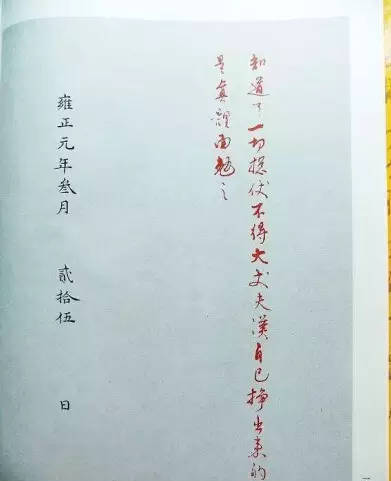 知道了一切总仗不得大丈夫漢自己掙出来的
是真體面勉之
雍正元年叁月 貳拾伍 日